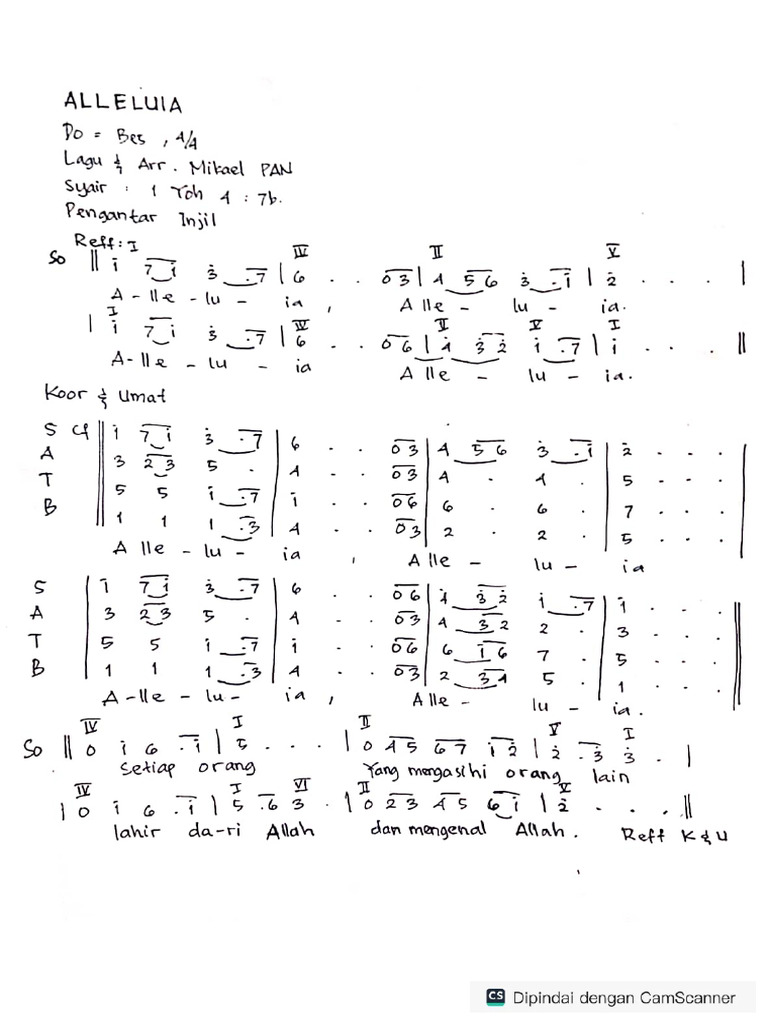 ALLELUIA
Do = Bes , 4/4
Lagu & Arr. Mikael PAN
Syair : 1 Yoh 4 : 7b.
Pengantar Injil
Reff: I IV II V
So || i̇ 7 i̇ 3̇ .7 | 6 . . 03 | 4 56 3̇ .i̇ | 2̇ . . . |
A - lle - lu - ia , Alle - lu - ia.
I IV II V I
| i̇ 7 i̇ 3̇ .7 | 6 . . 06 | 4̇ 3̇2̇ i̇ .7 | i̇ . . . ||
A - lle - lu - ia Alle - lu - ia.
Koor & Umat
S Cf || i̇ 7 i̇ 3̇ .7 | 6 . . 03 | 4 56 3̇ .i̇ | 2̇ . . . |
A 3 23 5 . | 4 . . 03 | 4 . 4 . | 5 . . .
T 5 5 i̇ .7 | i̇ . . 06 | 6 . 6 . | 7 . . .
B 1 1 1 .3 | 4 . . 03 | 2 . 2 . | 5 . . .
Alle - lu - ia , Alle - lu - ia
S | i̇ 7 i̇ 3̇ .7 | 6 . . 06 | 4̇ 3̇2̇ i̇ .7 | i̇ . . . ||
A 3 23 5 . | 4 . . 03 | 4 32 2 . | 3 . . .
T 5 5 i̇ .7 | i̇ . . 06 | 6 i̇6 7 . | 5 . . .
B 1 1 1 .3 | 4 . . 03 | 2 34 5 . | 1 . . .
A - lle - lu - ia , Alle - lu - ia.
IV I II V I
So || 0 i̇ 6 .i̇ | 5 . . . | 0 45 67 i̇2̇ | 2̇ .3̇ 3̇ . |
Setiap orang Yang mengasihi orang lain
IV I VI II V
| 0 i̇ 6 .i̇ | 5 .6 3 . | 0 23 45 6i̇ | 2̇ . . . ||
lahir da-ri Allah dan mengenal Allah. Reff K & U
CS Dipindai dengan CamScanner